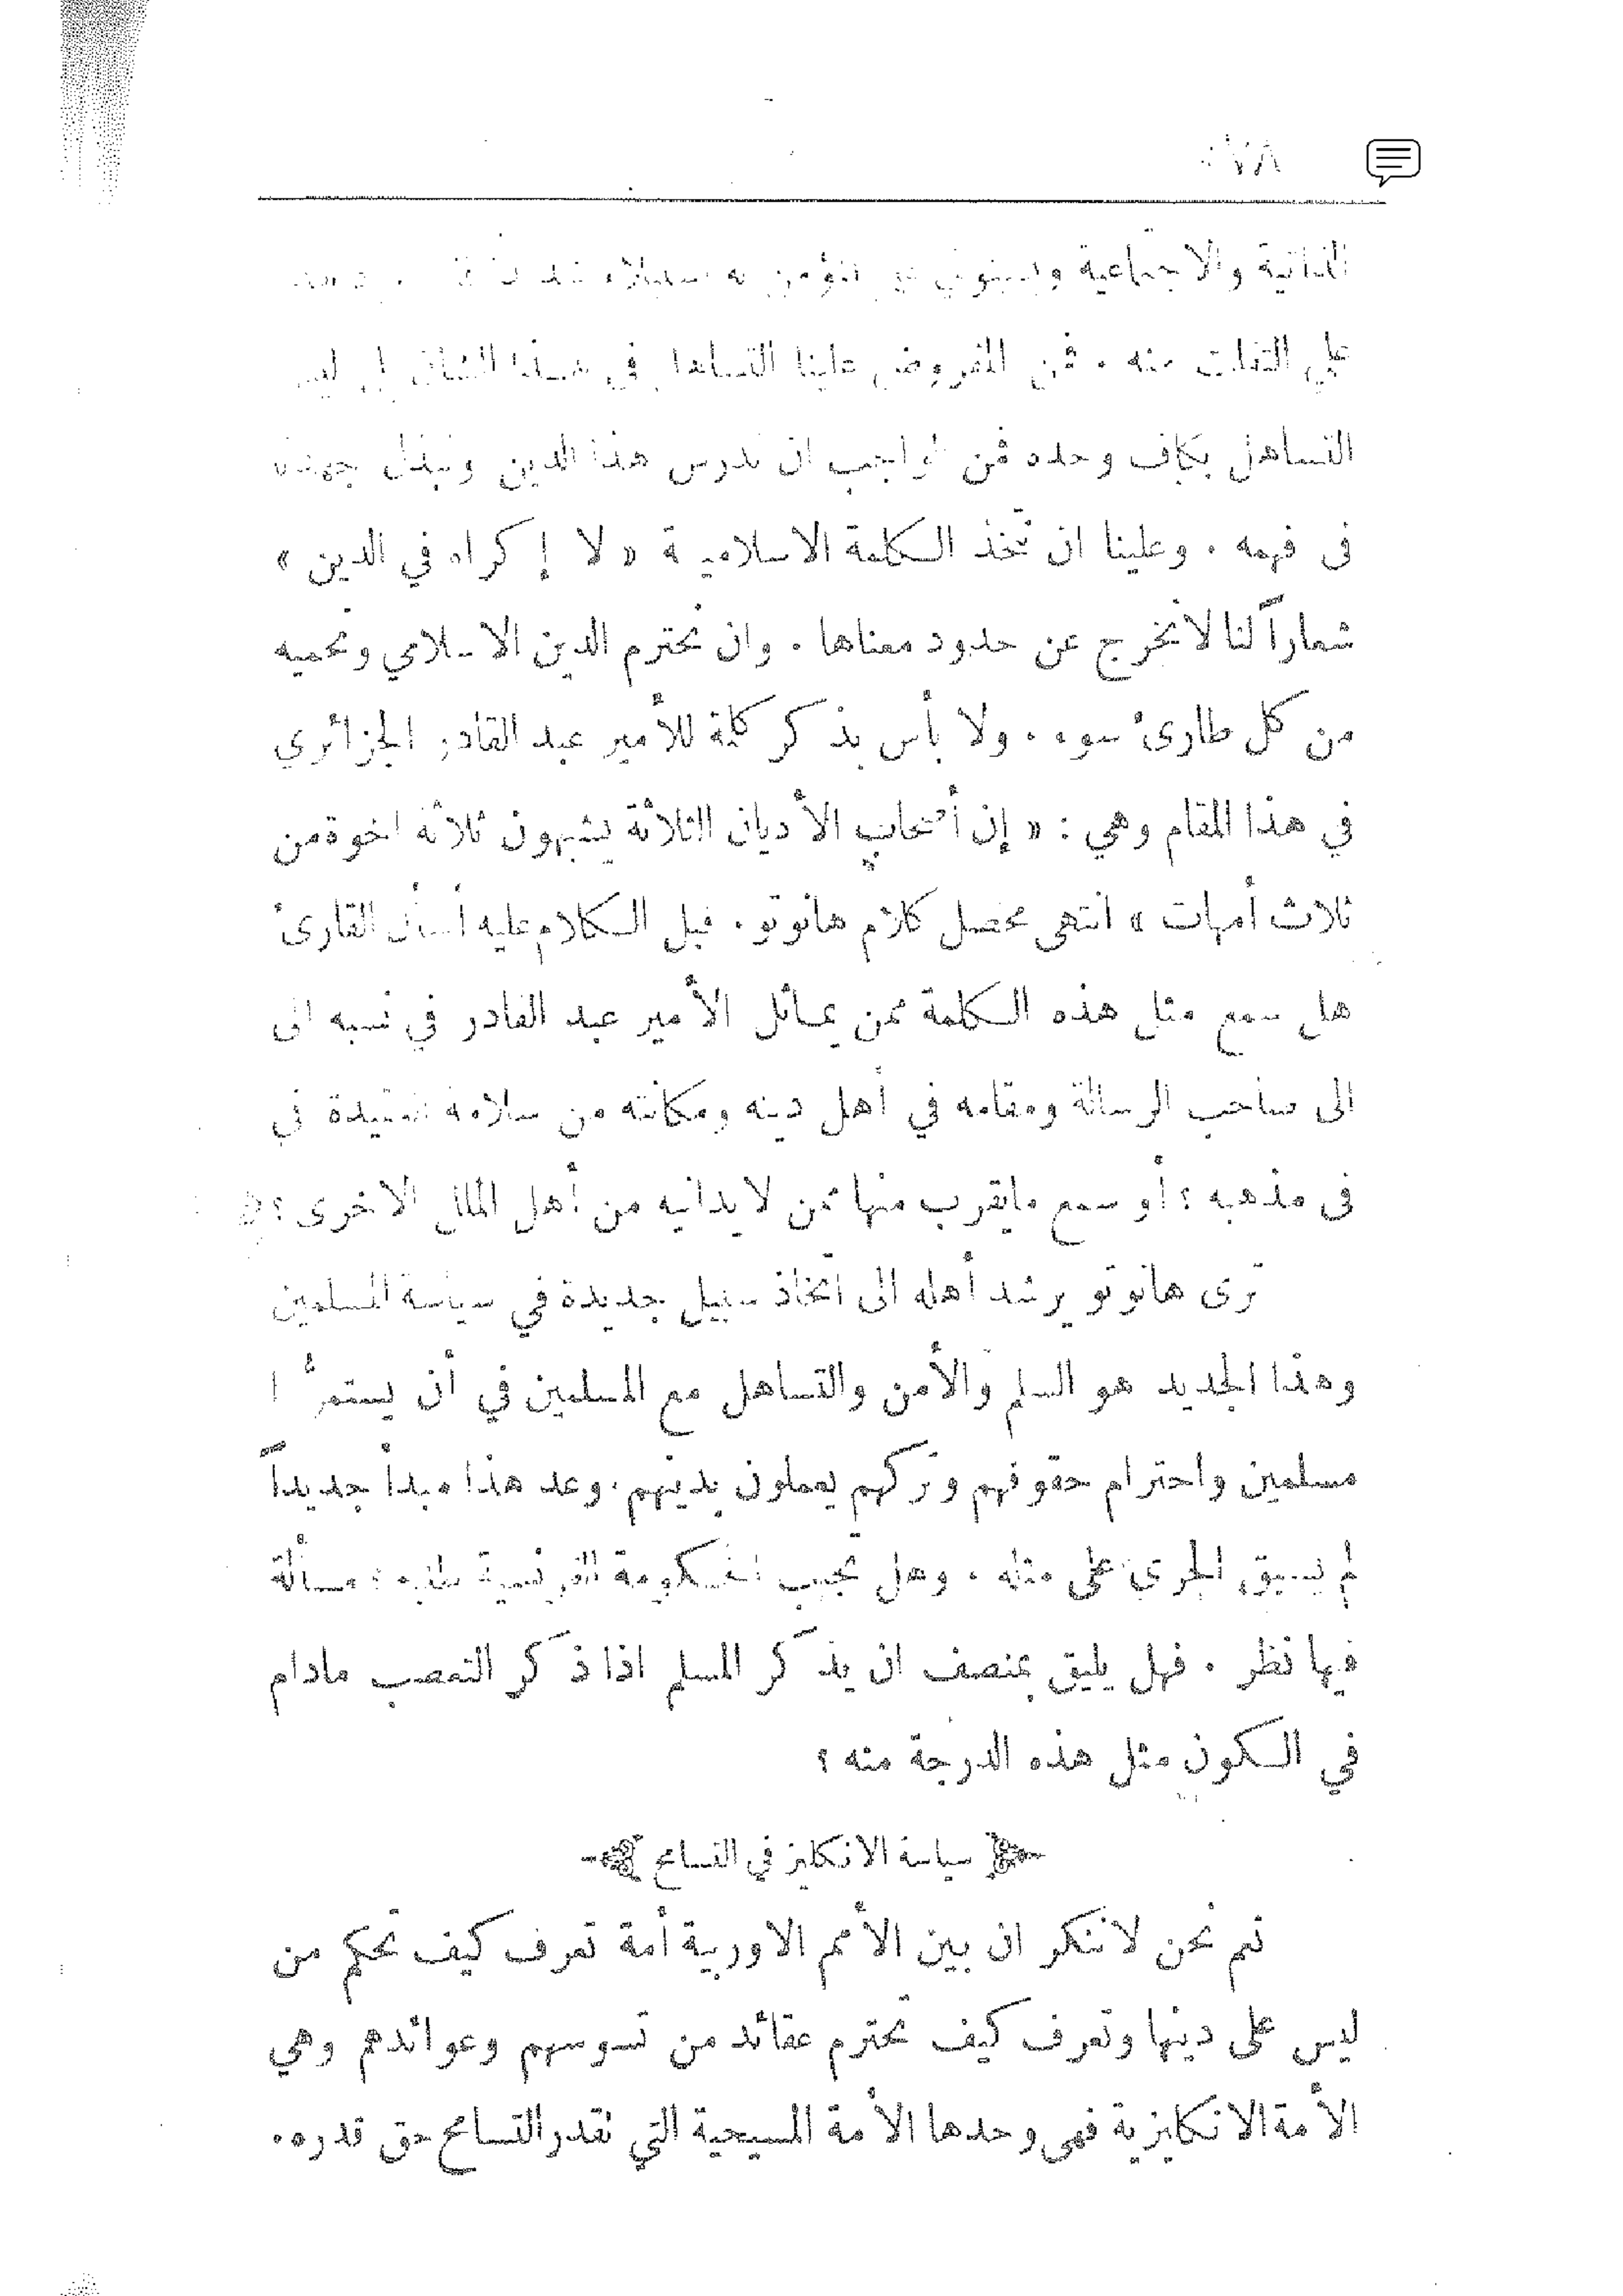 ٧٨
الذاتية والاجتماعية
على التفلت منه . فمن المفروض علينا التساهل في هذا الشأن
التساهل بكاف وحده فمن الواجب ان ندرس هذا الدين ونبذل جهدنا
فى فهمه . وعلينا ان نتخذ الكلمة الاسلامية « لا إكراه في الدين »
شعاراً لنا لا نخرج عن حدود معناها . وان نحترم الدين الاسلامي ونحميه
من كل طارئ سوء . ولا بأس بذكر كلمة للأمير عبد القادر الجزائري
في هذا المقام وهي : « إن أصحاب الأديان الثلاثة يشبهون ثلاثة اخوة من
ثلاث أمهات » انتهى محصل كلام هانوتو . قبل الكلام عليه أسأل القارئ
هل سمع مثل هذه الكلمة ممن يماثل الأمير عبد القادر في نسبه الى
الى صاحب الرسالة ومقامه في أهل دينه ومكانته من سلامة العقيدة في
فى مذهبه ؟ أو سمع مايقرب منها ممن لا يدانيه من أهل الملل الاخرى ؟
ترى هانوتو يرشد أهله الى اتخاذ سبيل جديدة في سياسة المسلمين
وهذا الجديد هو السلم والأمن والتساهل مع المسلمين في أن يستمرُّوا
مسلمين واحترام حقوقهم وتركهم يعملون بدينهم . وعد هذا مبدأ جديداً
لم يسبق الجري على مثله . وهل تجيب الحكومة الفرنسية طلبه ؟ مسألة
فيها نظر . فهل يليق بمنصف ان يذكر المسلم اذا ذكر التعصب مادام
في الكون مثل هذه الدرجة منه ؟
سياسة الانكليز في التسامح
نعم نحن لاننكر ان بين الأمم الاوربية أمة تعرف كيف تحكم من
ليس على دينها وتعرف كيف تحترم عقائد من تسوسهم وعوائدهم وهي
الأمة الانكليزية فهى وحدها الأمة المسيحية التي تقدر التسامح حق قدره .